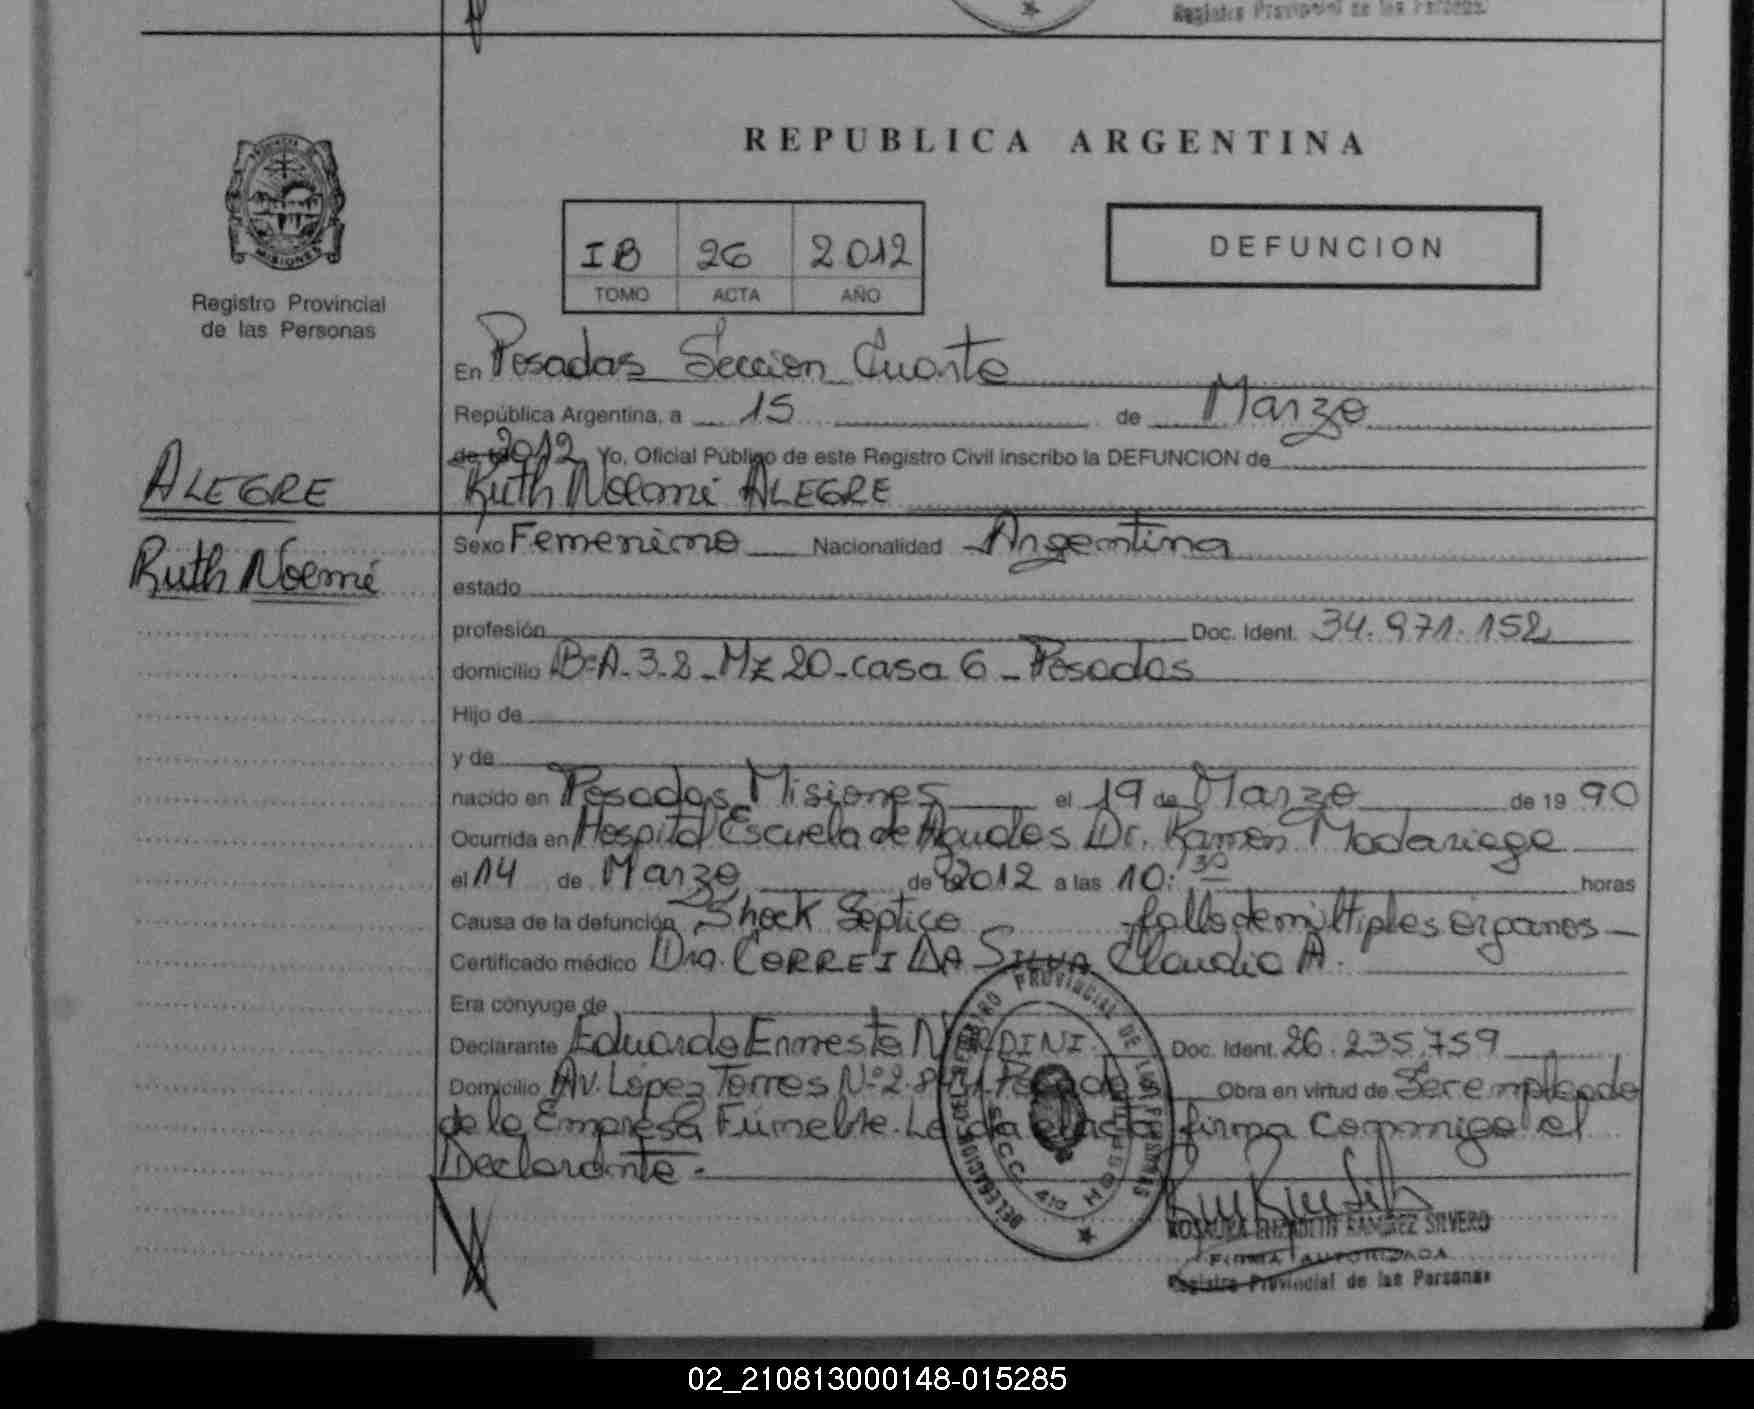 Registro Provincial de las Personas
REPUBLICA ARGENTINA
PROVINCIA DE
MISIONES
Registro Provincial
de las Personas
IB 26 2012
TOMO ACTA AÑO
DEFUNCION
En Posadas Seccion Cuarta
República Argentina, a 15 de Marzo
de 2012 Yo, Oficial Público de este Registro Civil inscribo la DEFUNCION de
ALEGRE
Ruth Noemi ALEGRE
Ruth Noemi
Sexo Femenino Nacionalidad Argentina
estado
profesión Doc. Ident. 34.971.152
domicilio Bº A-3-2-Mz 20-casa 6-Posadas
Hijo de
y de
nacido en Posadas Misiones el 19 de Marzo de 19 90
Ocurrida en Hospital Escuela de Agudos Dr. Ramon Madariaga
el 14 de Marzo de 2012 a las 10:30 horas
Causa de la defunción Shock Septico fallo de múltiples organos
Certificado médico Dra. CORREI DA SILVA Claudia A.
Era cónyuge de
Declarante Eduardo Ernesto Doc. Ident. 26.235.759
Domicilio Av. López Torres Nº 2 Obra en virtud de Ser empleado
de la Empresa Fúnebre. Leida el acta firma Conmigo el
Declarante.-
DELEGACION DEL REGISTRO PROVINCIAL DE LAS PERSONAS
RAMIREZ SILVERO
FIRMA AUTORIZADA
Registro Provincial de las Personas
02_210813000148-015285